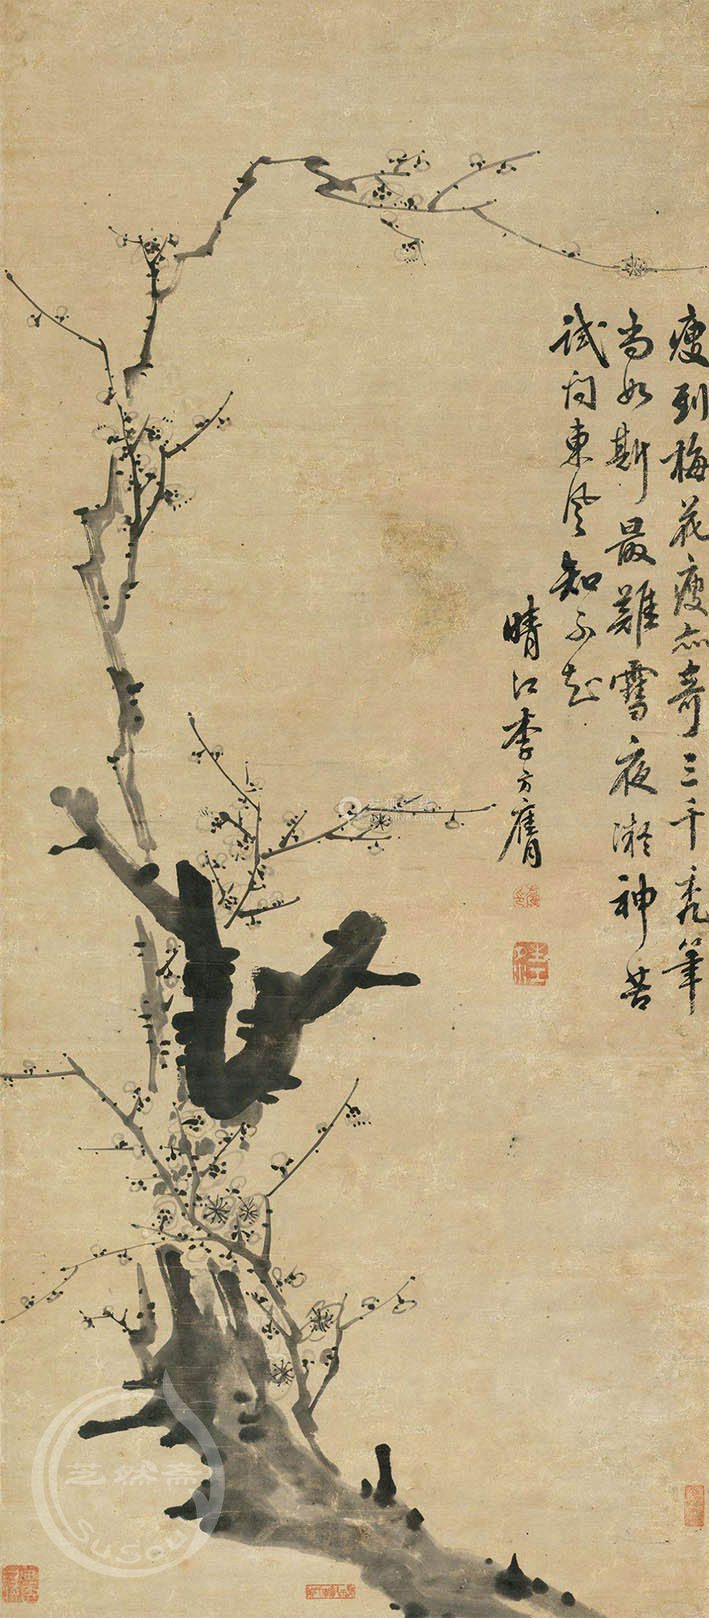 瘦到梅花瘦亦奇三千禿筆
尚如斯最難雪夜凝神苦
試問東風知不知
晴江李方膺
芝妹斋
SuSou